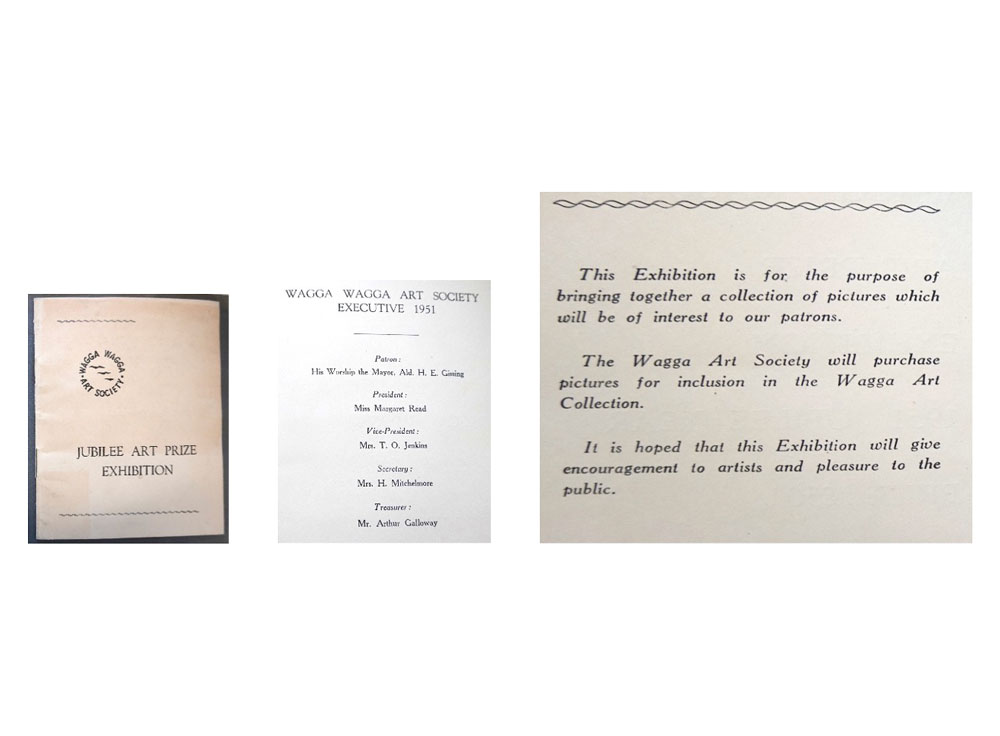 WAGGA WAGGA
ART SOCIETY
JUBILEE ART PRIZE
EXHIBITION
WAGGA WAGGA ART SOCIETY
EXECUTIVE 1951
Patron:
His Worship the Mayor, Ald. H. E. Gissing
President:
Miss Margaret Read
Vice-President:
Mrs. T. O. Jenkins
Secretary:
Mrs. H. Mitchelmore
Treasurer:
Mr. Arthur Galloway
This Exhibition is for the purpose of
bringing together a collection of pictures which
will be of interest to our patrons.
The Wagga Art Society will purchase
pictures for inclusion in the Wagga Art
Collection.
It is hoped that this Exhibition will give
encouragement to artists and pleasure to the
public.